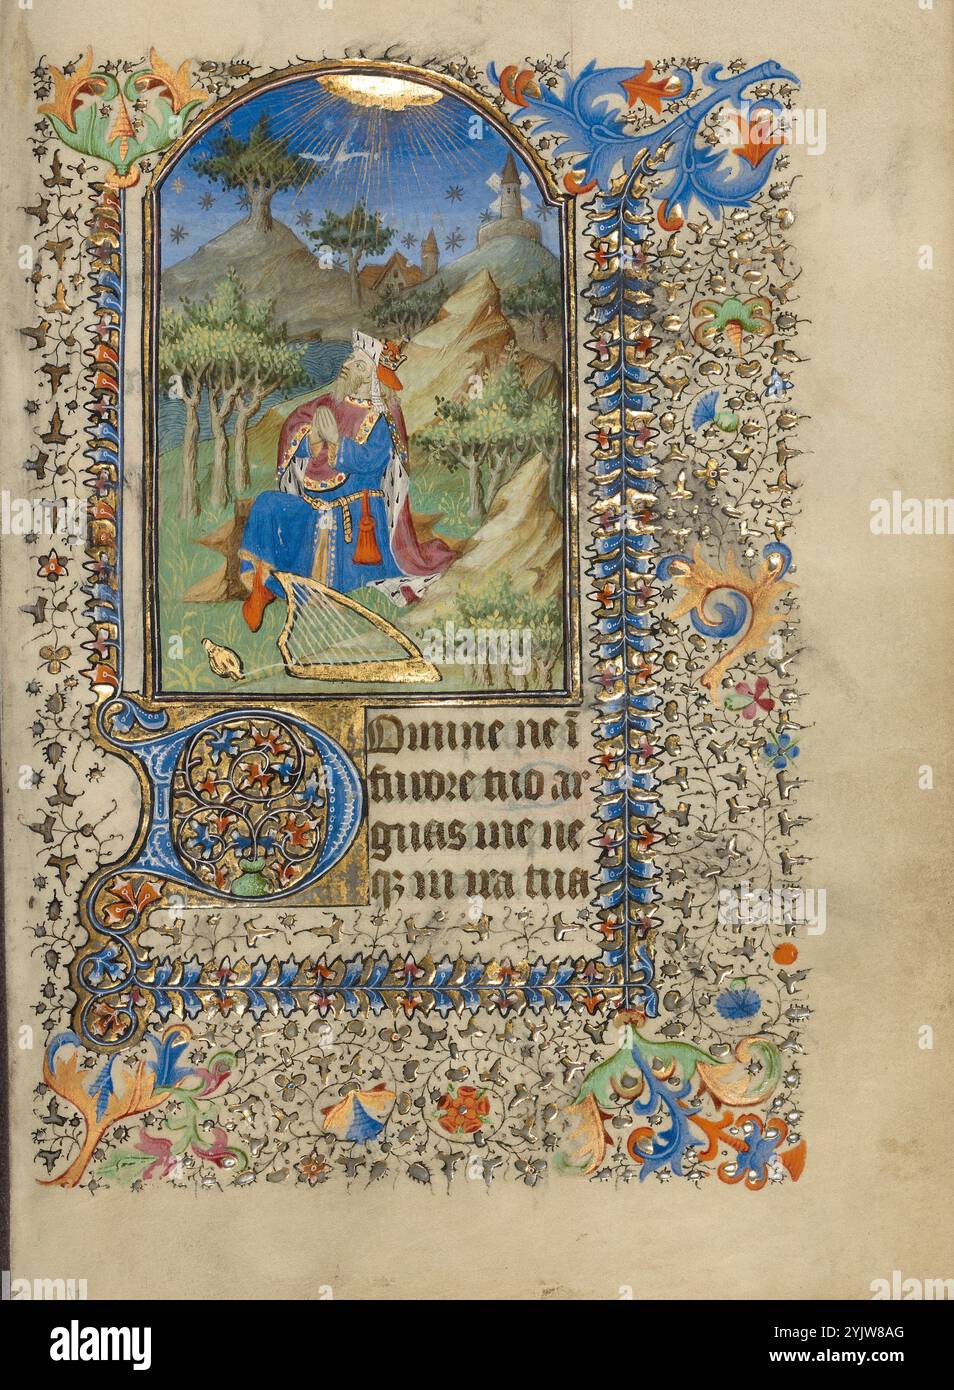 Domine ne ī
furore tuo ar
guas me ne
qꝫ in ira tua
alamy
Image ID: 2YJW8AG
www.alamy.com